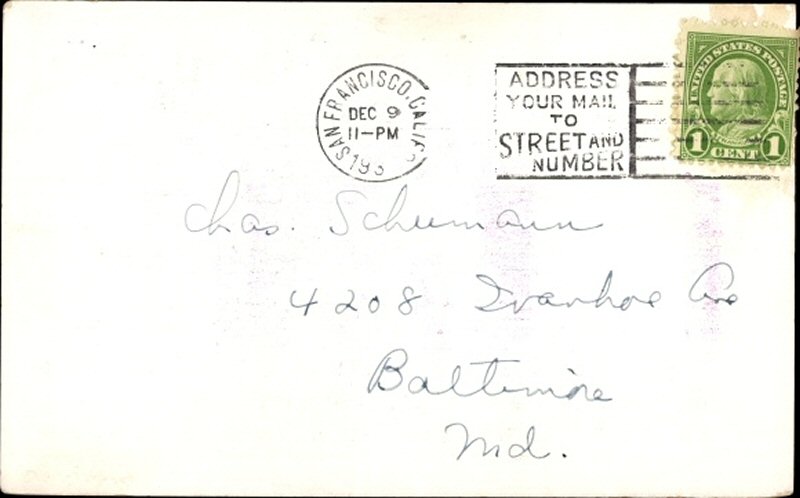 SAN FRANCISCO, CALIF.
DEC 9
11-PM
193
ADDRESS
YOUR MAIL
TO
STREET AND
NUMBER
UNITED STATES POSTAGE
1 CENT 1
Chas. Schumann
4208 Ivanhoe Ave
Baltimore
Md.